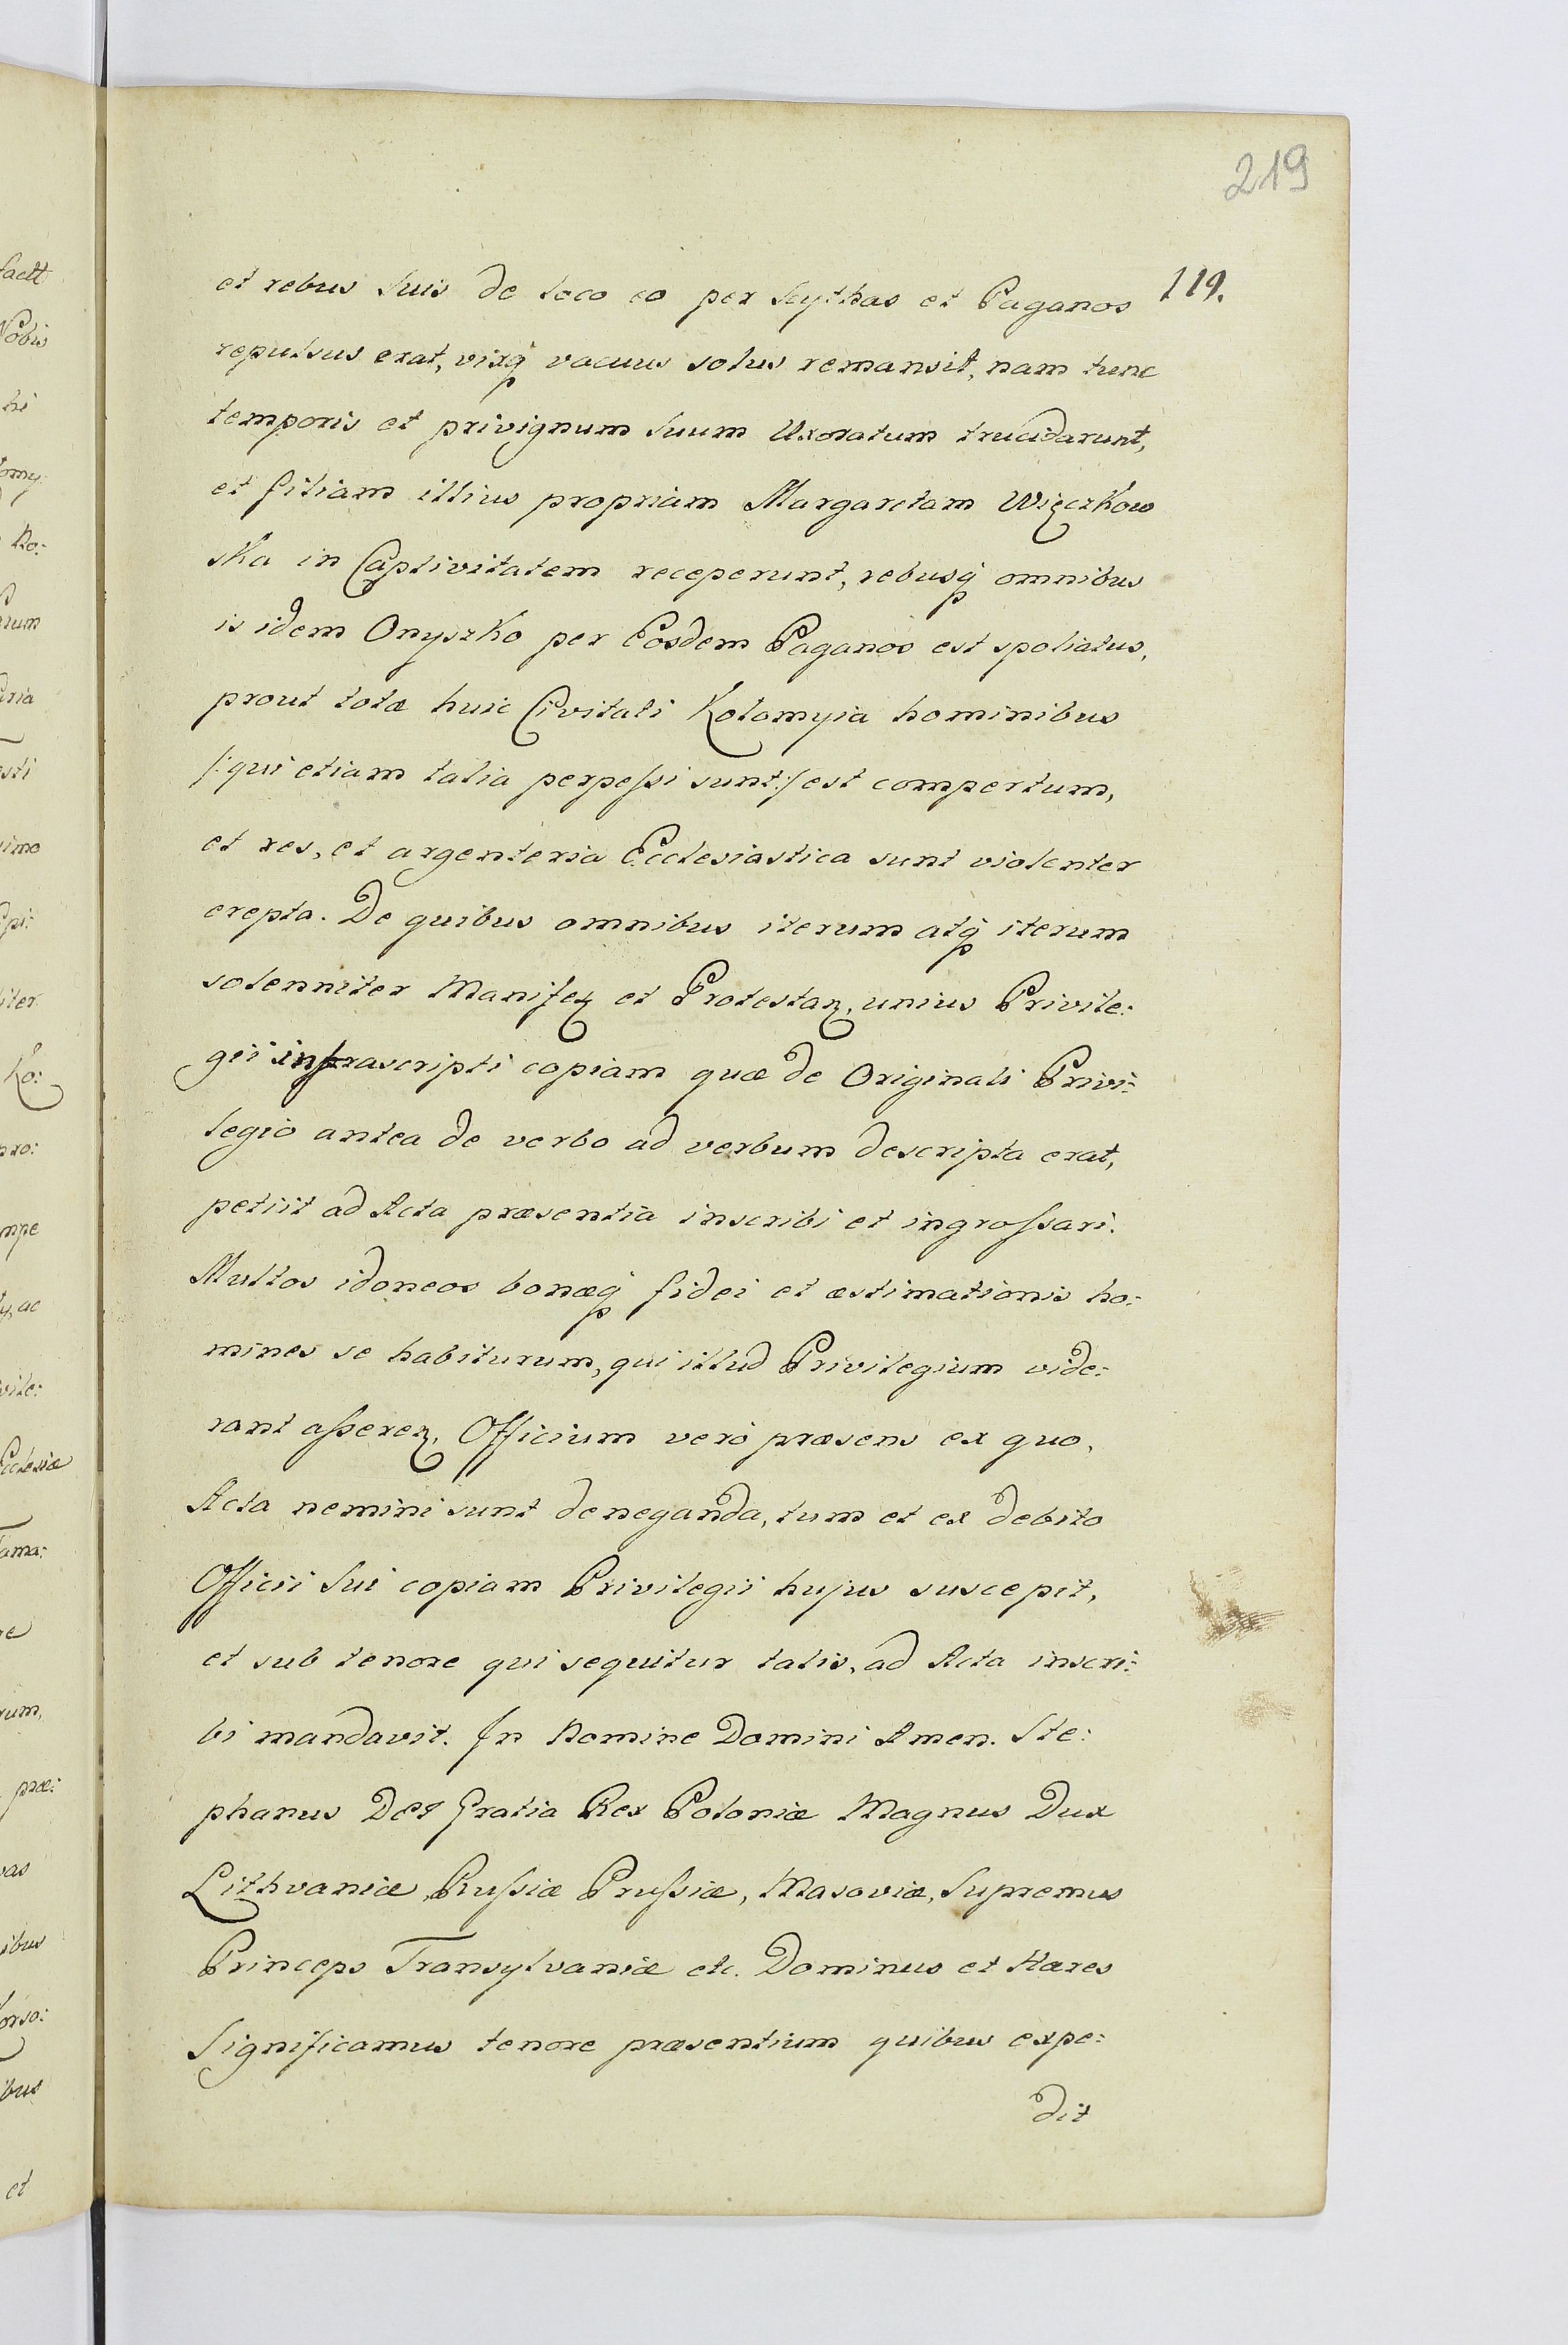 219
et rebus suis de loco eo per Scythas et Paganos 119.
repulsus erat, vixq vacuus solus remansit, nam tunc
temporis et privignum suum Uxoratum trucidarunt,
et filiam illius propriam Margaretam Więczkow
ska in Captivitatem receperunt, rebusq omnibus
is idem Onyszko per Eosdem Paganos est spoliatus,
prout totæ huic Civitati Kolomyia hominibus
/:qui etiam talia perpeſsi sunt:/ est compertum,
et res, et argenteria Ecclesiastica sunt violenter
erepta. De quibus omnibus iterum atq iterum
solenniter Manifeꝫ et Protestaꝫ, unius Privile:
gii infrascripti copiam quæ de Originali Privi:
legio antea de verbo ad verbum descripta erat,
petiit ad Acta præsentia inscribi et ingroſsari.
Multos idoneos bonæq fidei et æstimationis ho:
mines se habiturum, qui illud Privilegium vide:
rant aſsereꝫ. Officium verò præsens ex quo,
Acta nemini sunt deneganda, tum et ex debito
Officii Sui copiam Privilegii hujus suscepit,
et sub tenore qui sequitur talis, ad Acta inscri:
bi mandavit. In Nomine Domini Amen. Ste:
phanus Dei Gratia Rex Poloniæ Magnus Dux
Lithvaniæ, Ruſsiæ Pruſsiæ, Masoviæ, Supremus
Princeps Transylvaniæ etc. Dominus et Hæres
Significamus tenore præsentium quibus expe:
dit